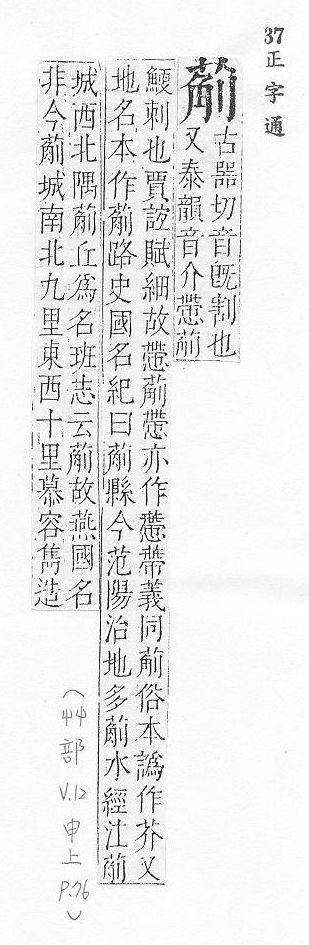 37 正字通
葪
古器切音旣割也
又泰韻音介懘葪
鯁刺也賈誼賦細故懘葪懘亦作慸蔕義同葪俗本譌作芥又
地名本作葪路史國名紀曰葪縣今范陽治地多葪水經注葪
城西北隅葪丘爲名班志云葪故燕國名
非今葪城南北九里東西十里慕容雋造
(艸部 V.12 申上 P.76)